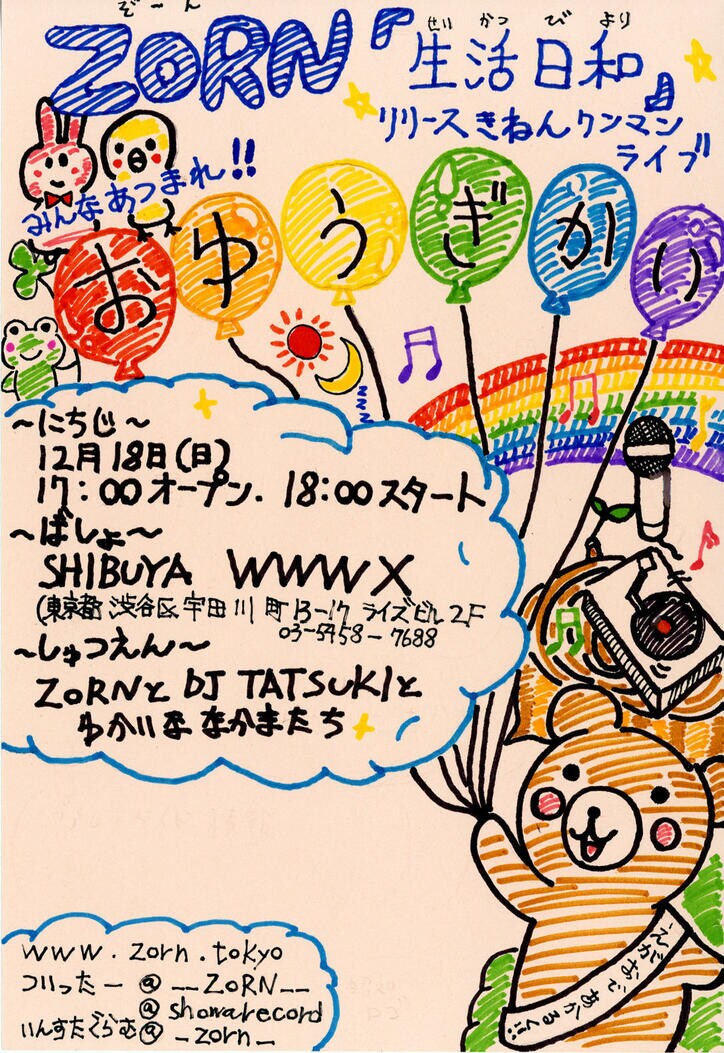 ぞーん
ZORN『生活日和』
せいかつびより
リリースきねんワンマン
ライブ
みんなあつまれ!!
おゆうぎかい
zzz
~にちじ~
12月18日(日)
17:00オープン. 18:00スタート
~ばしょ~
SHIBUYA WWW X
(東京都渋谷区宇田川町13-17 ライズビル2F
03-5458-7688
~しゅつえん~
ZORNとDJ TATSUKIと
ゆかいななかまたち
www.zorn.tokyo
ついったー@__ZORN__
@showarecord
いんすたぐらむ@_zorn_